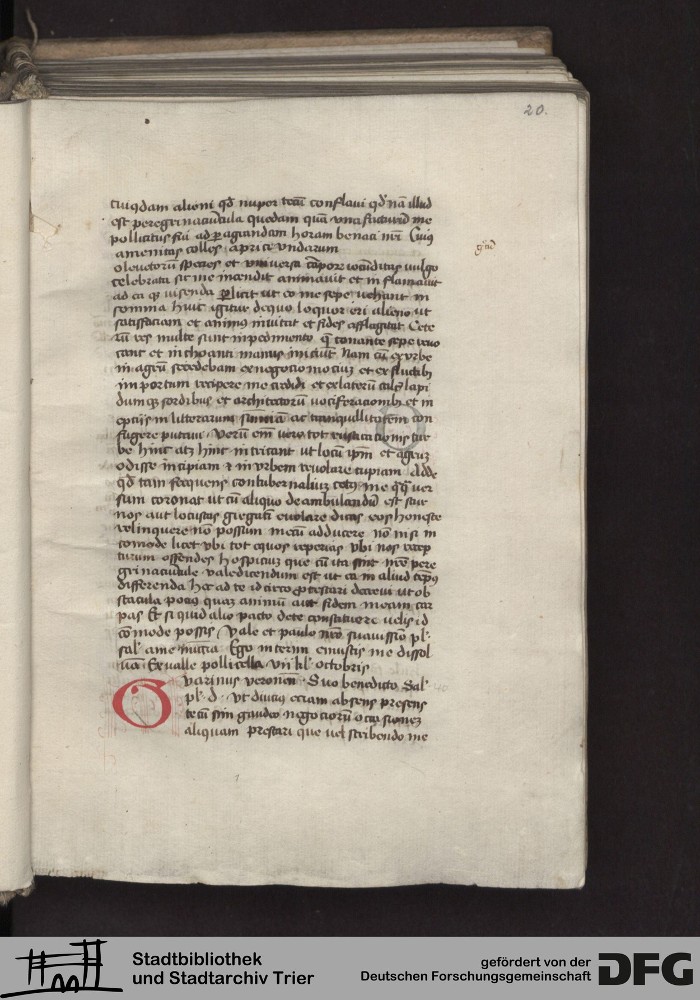 20.
cuiusdam alieni qd nuper tecu conflavi qd na illud
est peregrinaciuncula quedam qua una facturu me
pollicitus fui ad agrandam horam benaci nri Cuius
amenitas colles aprici undarum
olivetoru species et universa iocunditas vulgo
celebrata sic me incendit animavit et inflamavit
ad ea visenda ut eo me sepe vehant in
somnia huic igitur de quo loquor ori alieno ut
satisfaciam et animus invitat et fides afflagitat Cete
ru res multe sunt inpedimento q conante sepe revo
cant et inchoanti manus iniciut Nam cu ex urbe
in agru secedebam ex negocio in ociu et ex fluctib
in portum recipere me credidi et exlateru lapi
dumq sordibus et architectoru vociferacionib et in
epciis in litterarum ac tranquillitatem con
fugere putavi Veru eni vero tot rusticationis tur
be hinc atq hinc intricant ut locu ipm et agru
odisse incipiam et in urbem revolare cupiam Adde
qd tam frequens contubernaliu cetus me ver
sum coronat ut cu aliquo deambulandu est stur
nos aut locustas gregati evolare dicas eos honeste
relinquere no possum mecu adducere no nisi in
comode licet ubi tot equos reperias ubi nos recep
turum offendes hospiciu que cu ita sint nre pere
grinaciucule valedicendum est ut ea in aliud temp
differenda hec ad te idcirco protestari decrevi ut ob
stacula pocius quam animu aut fidem meam car
pas Et si quid alio pacto de te constituere velis id
comode possis Vale et paulo nro suavissio pl
sal a me nuncia Ego interim e mustis me dissol
va Ex valle pollicella vii kl octobris
Guarinus veronen Suo benedicto Sal
pl d Ut diucius eciam absens presens
tecu sim gaudeo negocioru occasionez
aliquam prestari que vel scribendo me
Stadtbibliothek
und Stadtarchiv Trier
gefördert von der
Deutschen Forschungsgemeinschaft
DFG